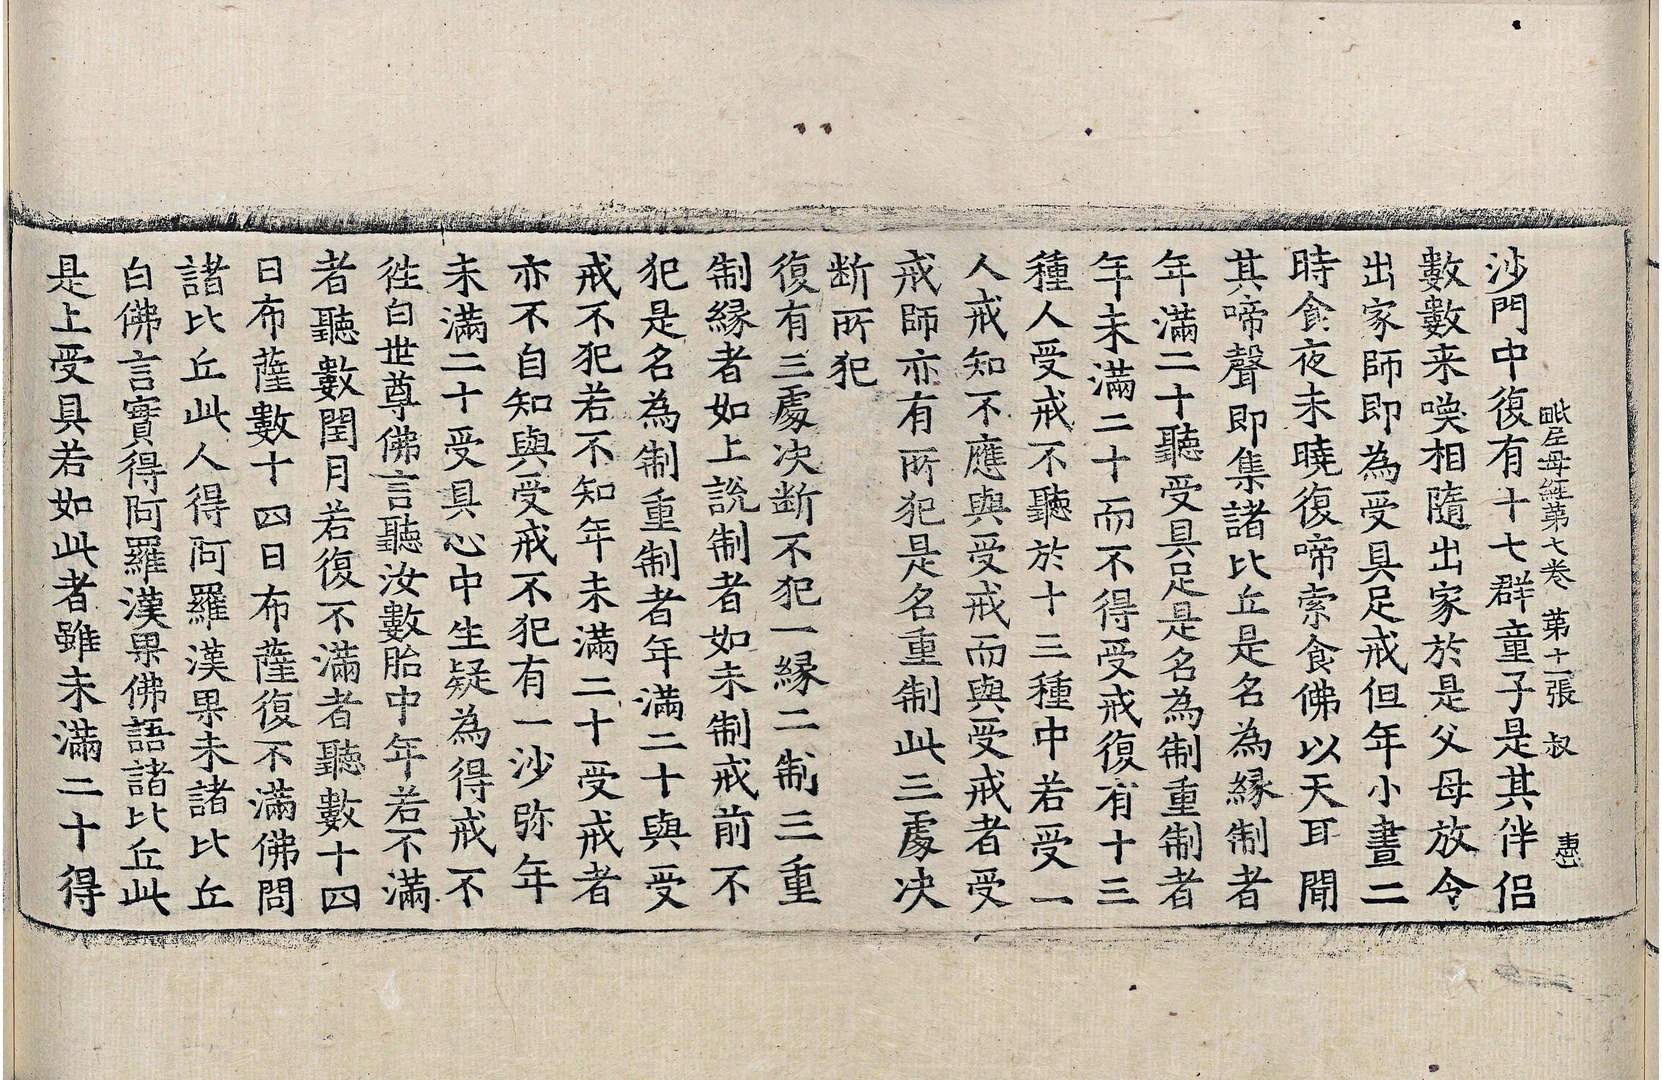 毗尼母經第七卷 第十一張 叔
沙門中復有十七群童子是其伴侶
數數来喚相隨出家於是父母放令
出家師即為受具足戒但年小晝二
時食夜未曉復啼索食佛以天耳聞
其啼聲即集諸比丘是名為緣制者
年滿二十聽受具足是名為制重制者
年未滿二十而不得受戒復有十三
種人受戒不聽於十三種中若受一
人戒知不應與受戒而與受戒者受
戒師亦有所犯是名重制此三處决
断所犯
復有三處决断不犯一緣二制三重
制緣者如上說制者如未制戒前不
犯是名為制重制者年滿二十與受
戒不犯若不知年未滿二十受戒者
亦不自知與受戒不犯有一沙弥年
未滿二十受具心中生疑為得戒不
徃白世尊佛言聽汝數胎中年若不滿
者聽數閏月若復不滿者聽數十四
日布薩數十四日布薩復不滿佛問
諸比丘此人得阿羅漢果未諸比丘
白佛言實得阿羅漢果佛語諸比丘此
是上受具若如此者雖未滿二十得